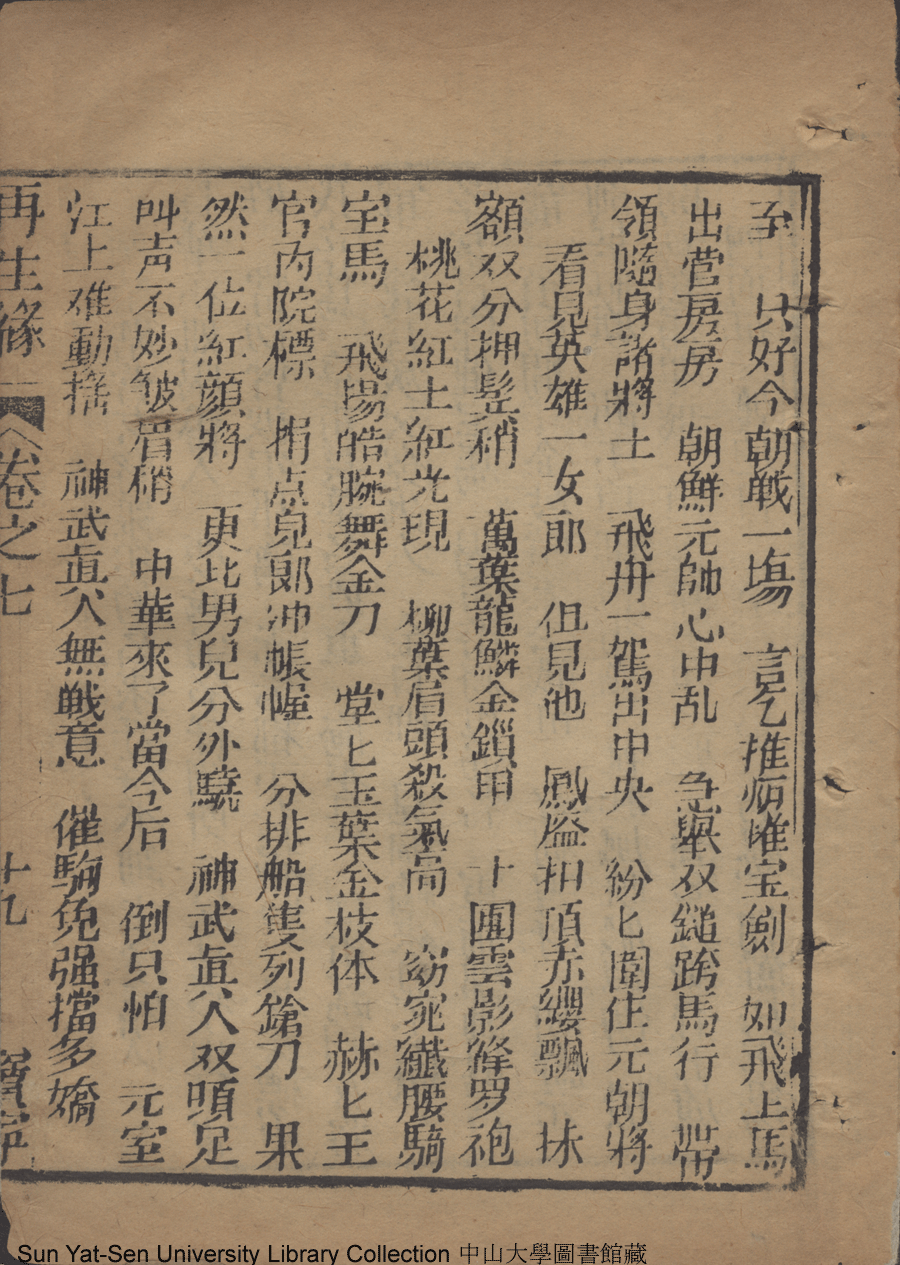 至　只好今朝戦一塲　言乞推病唯宝劍　如飛上馬
出营房房　朝鮮元帥心中乱　急舉双鎚跨馬行　帶
領隨身諸將士　飛舟一駕出中央　紛匕圍住元朝將
看見英雄一女郎　但見他　鳳盔扣頂赤纓飄　抹
額双分押髩稍　萬葉龍鱗金鎖甲　十團雲影絳罗袍
桃花紅土紅光現　柳葉眉頭殺氣高　窈窕纖腰騎
宝馬　飛揚皓腕舞金刀　堂匕玉葉金枝体　赫匕王
官内院標　指点皃郎冲帳幄　分排船隻列鎗刀　果
然一位紅顔將　更比男兒分外驍　神武眞人双頭足
叫声不妙皱眉稍　中華來了當今后　倒只怕　元室
江上难動搖　神武眞人無戦意　催駒免强擋多嬌
再生緣　卷之七　十九　寶寧
Sun Yat-Sen University Library Collection 中山大學圖書館藏